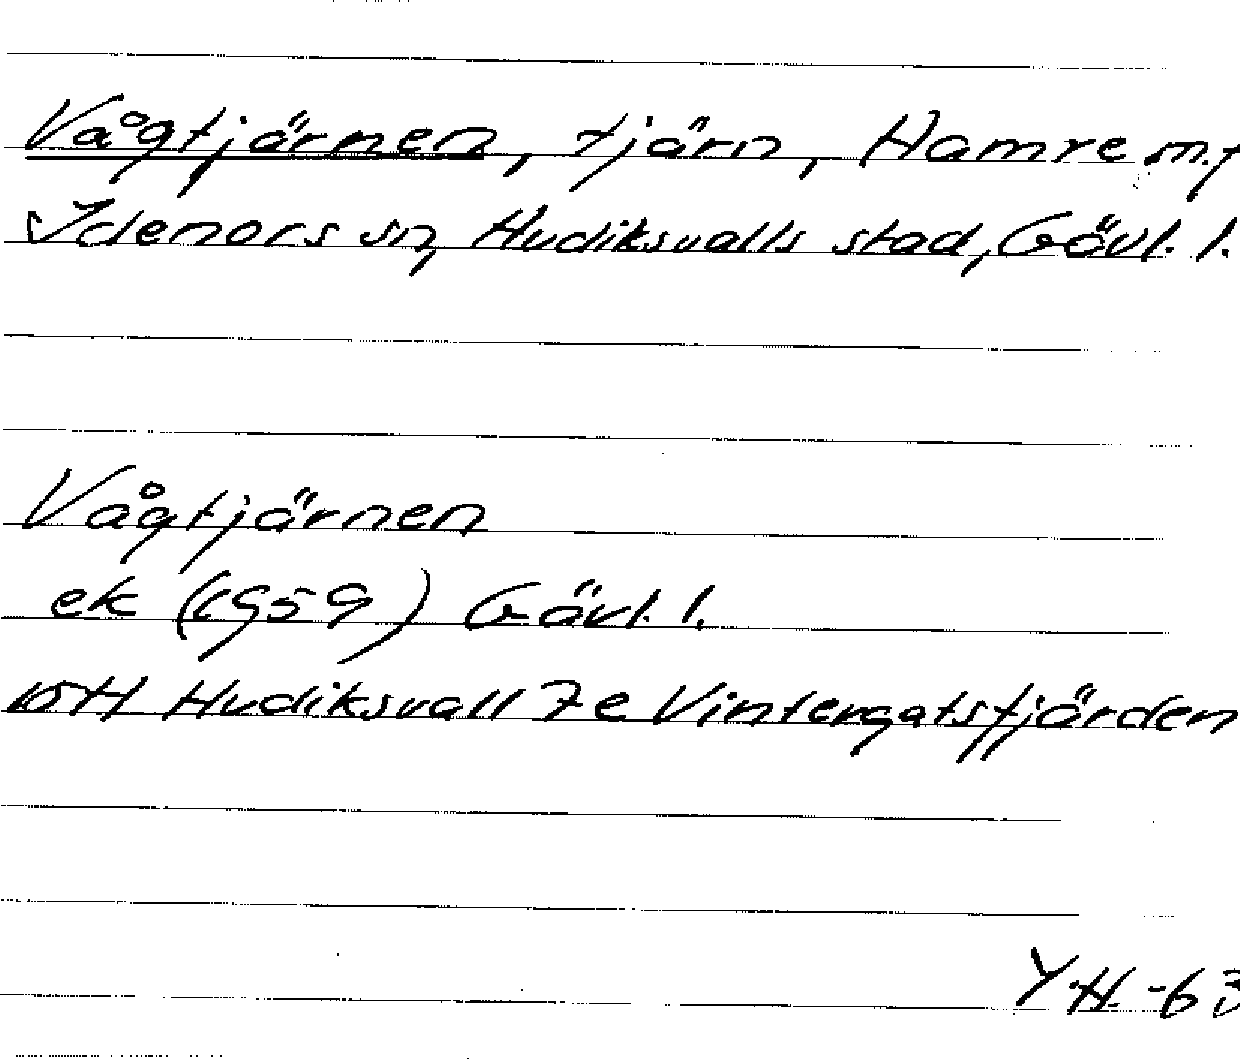 Vågtjärnen, tjärn, Hamre m.fl
Idenors sn, Hudiksvalls stad, Gävl. l.
Vågtjärnen
ek (1959) Gävl. l.
15H Hudiksvall 7e Vintergatsfjärden
Y.H. -63